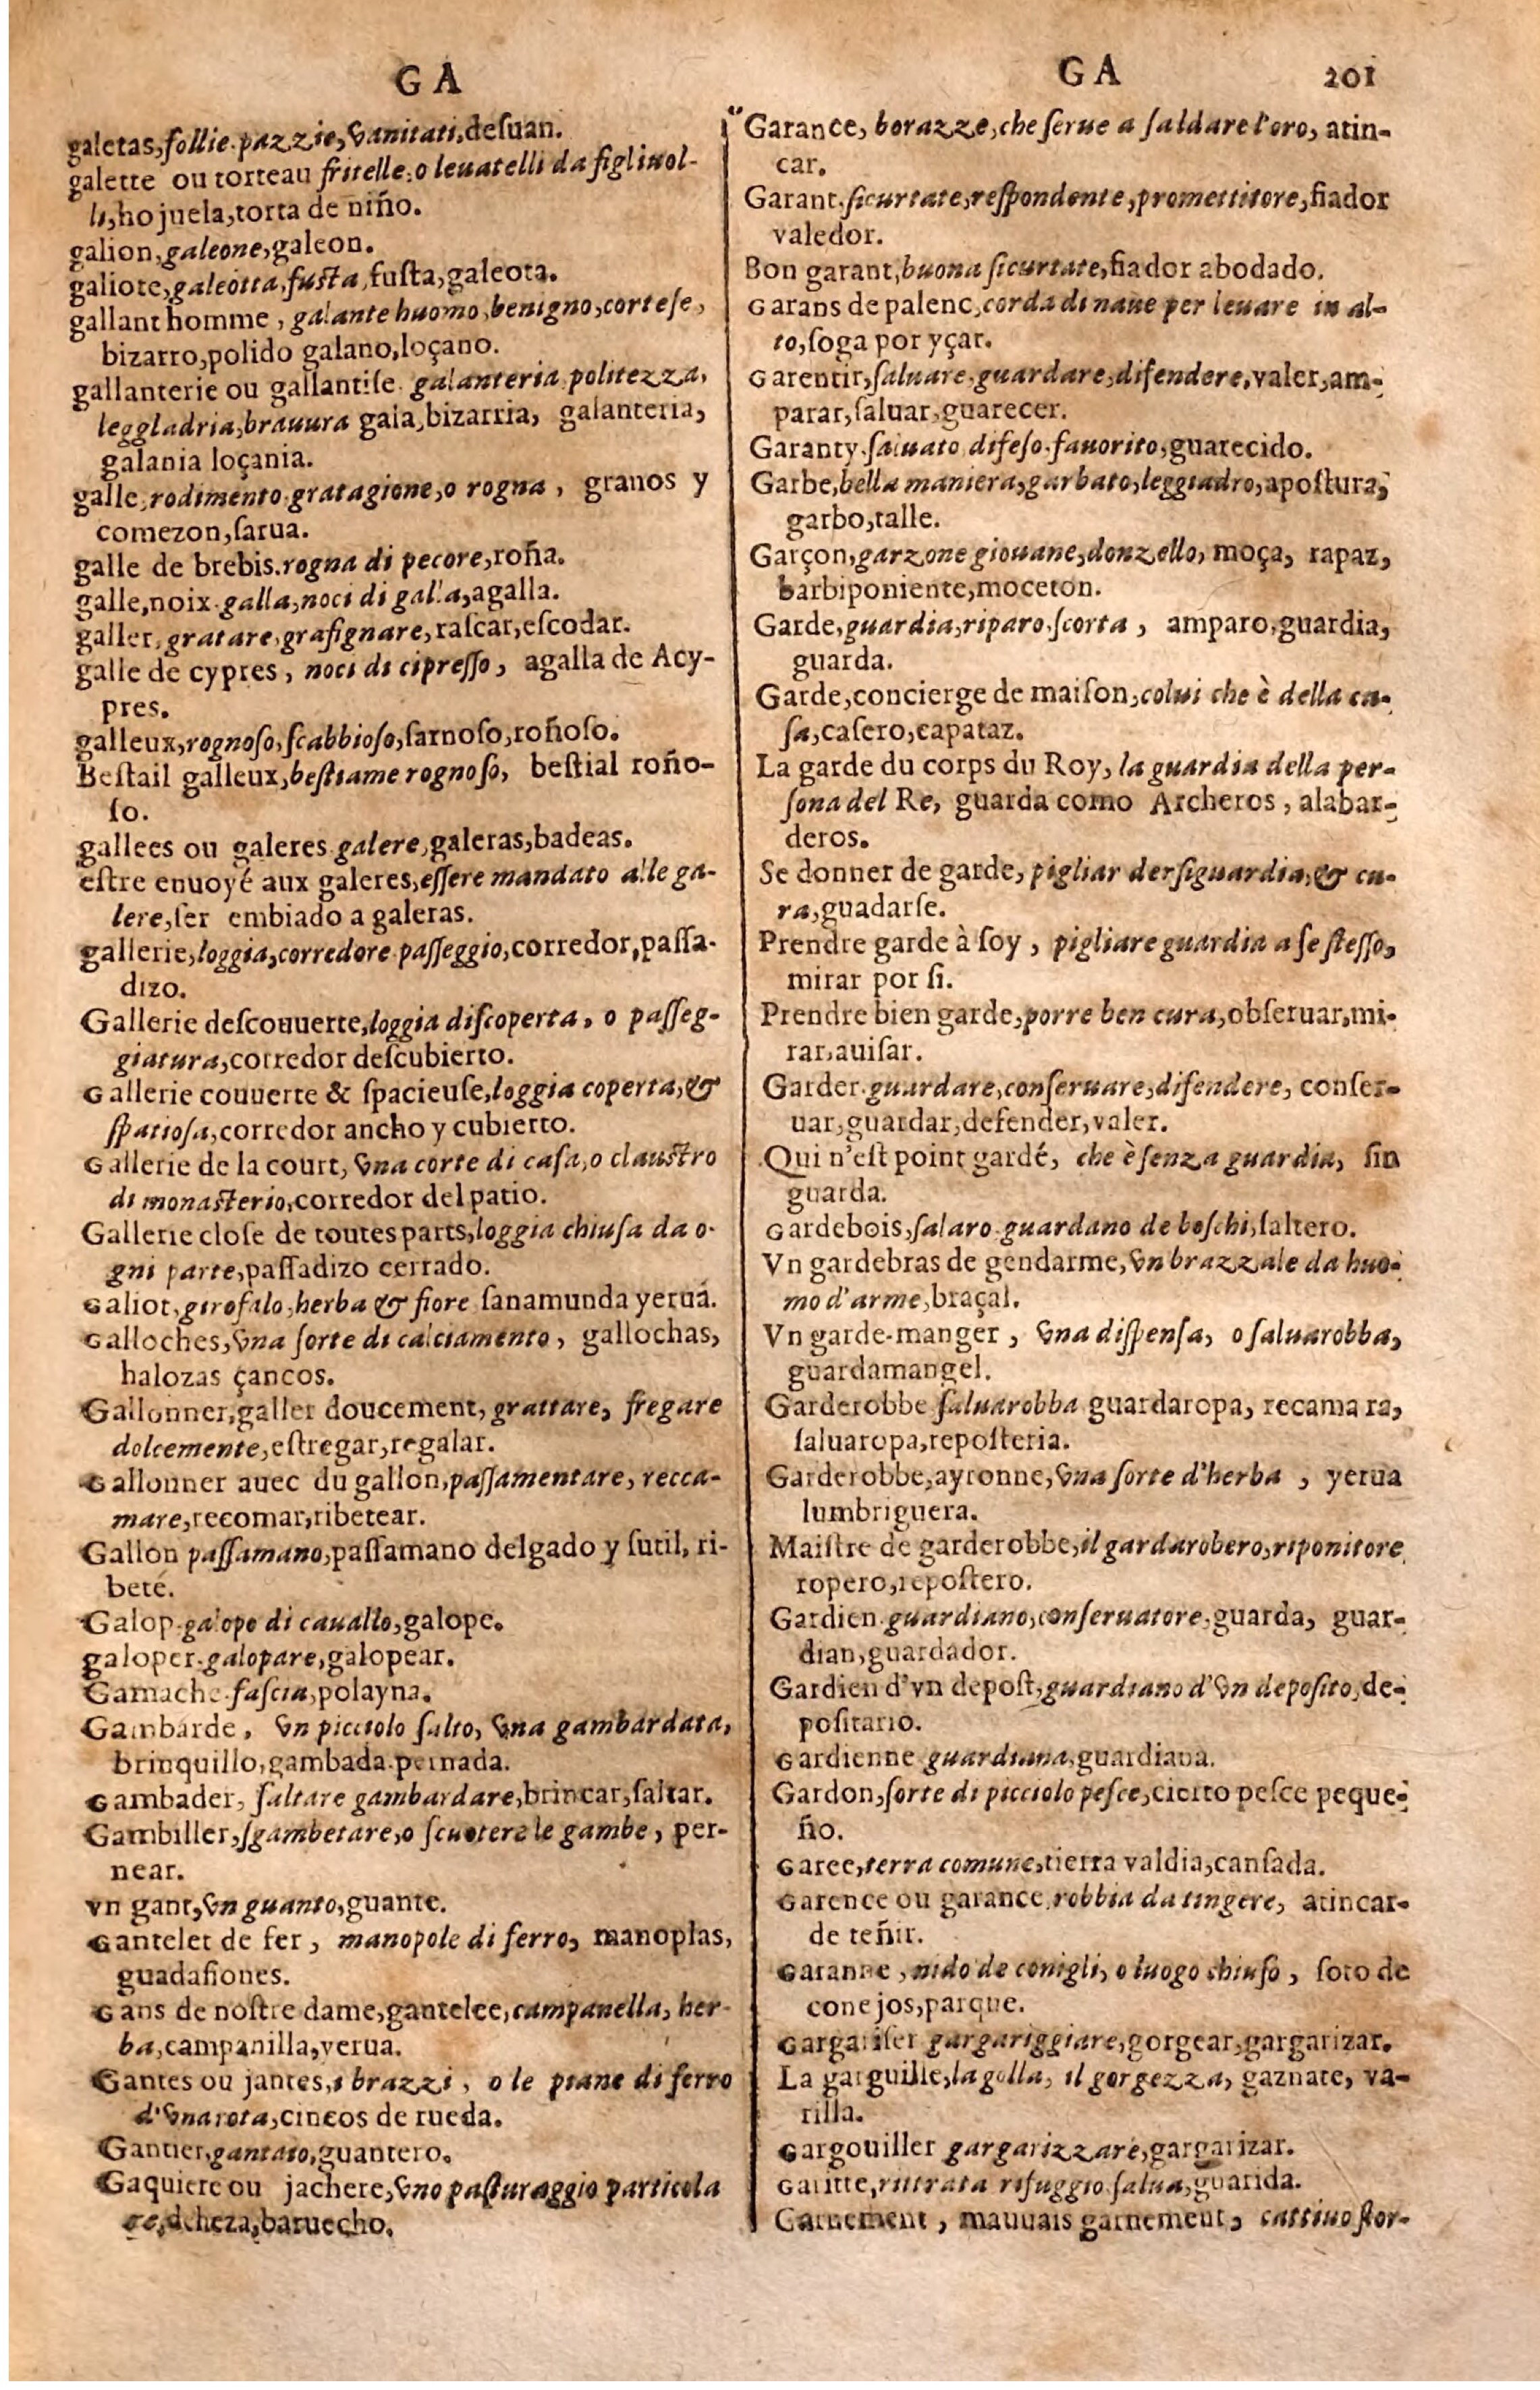 GA
galetas, follie. pazzie, vanitati, desuan.
galette ou torteau fritelle, o leuatelli da figliuol-
li, hojuela, torta de niño.
galion, galeone, galeon.
galiote, galeotta, fusta, fusta, galeota.
gallant homme, galante huomo, benigno, cortese,
bizarro, polido galano, loçano.
gallanterie ou gallantise. galanteria politezza,
leggladria, brauura gala, bizarria, galanteria,
galania loçania.
galle, rodimento. gratagione, o rogna, granos y
comezon, sarua.
galle de brebis. rogna di pecore, roña.
galle, noix. galla, noci di galla, agalla.
galler, gratare, grafignare, rascar, escodar.
galle de cypres, noci di cipresso, agalla de Acy-
pres.
galleux, rognoso, scabbioso, sarnoso, roñoso.
Bestail galleux, bestiame rognoso, bestial roño-
so.
gallees ou galeres. galere, galeras, badeas.
estre enuoyé aux galeres, essere mandato alle ga-
lere, ser embiado a galeras.
gallerie, loggia, corredore passeggio, corredor, passa-
dizo.
Gallerie descouuerte, loggia discoperta, o passeg-
giatura, corredor descubierto.
Gallerie couuerte & spacieuse, loggia coperta, &
spatiosa, corredor ancho y cubierto.
Gallerie de la court, vna corte di casa, o claustro
di monasterio, corredor del patio.
Gallerie close de toutes parts, loggia chiusa da o-
gni parte, passadizo cerrado.
Galiot, girofalo, herba & fiore sanamunda yeruá.
Galloches, vna sorte di calciamento, gallochas,
halozas çancos.
Gallonner, galler doucement, grattare, fregare
dolcemente, estregar, regalar.
Gallonner auec du gallon, passamentare, recca-
mare, recomar, ribetear.
Gallon passamano, passamano delgado y sutil, ri-
beté.
Galop. galopo di cauallo, galope.
galoper. galopare, galopear.
Gamache. fascia, polayna.
Gambarde, vn picciolo salto, vna gambardata,
brinquillo, gambada. pernada.
Gambader, saltare gambardare, brincar, saltar.
Gambiller, sgambetare, o scuotere le gambe, per-
near.
vn gant, vn guanto, guante.
Gantelet de fer, manopole di ferro, manoplas,
guadafiones.
Gans de nostre dame, gantelee, campanella, her-
ba, campanilla, yerua.
Gantes ou jantes, i brazzi, o le piane di ferro
d'vna rota, cincos de rueda.
Gantier, gantaio, guantero.
Gaquiere ou jachere, vno pasturaggio particola
ge, deheza, baruecho.
GA 201
Garance, borazze, che serue a saldare l'oro, atin-
car.
Garant, sicurtate, respondente, promettitore, fiador
valedor.
Bon garant, buona sicurtate, fiador abodado.
Garans de palenc, corda di naue per leuare in al-
to, soga por yçar.
Garentir, saluare. guardare, difendere, valer, am-
parar, saluar, guarecer.
Garanty. saluato difeso. fauorito, guarecido.
Garbe, bella maniera, garbato, leggiadro, apostura,
garbo, talle.
Garçon, garzone giouane, donzello, moça, rapaz,
barbiponiente, moceton.
Garde, guardia, riparo. scorta, amparo, guardia,
guarda.
Garde, concierge de maison, colui che è della ca-
sa, casero, capataz.
La garde du corps du Roy, la guardia della per-
sona del Re, guarda como Archeros, alabar-
deros.
Se donner de garde, pigliar dersiguardia, & cu-
ra, guadarse.
Prendre garde à soy, pigliare guardia a se stesso,
mirar por si.
Prendre bien garde, porre ben cura, obseruar, mi-
rar, auisar.
Garder. guardare, conseruare, difendere, conser-
uar, guardar, defender, valer.
Qui n'est point gardé, che è senza guardia, sin
guarda.
Gardebois, salaro. guardano de boschi, saltero.
Vn gardebras de gendarme, vn brazzale da huo-
mo d'arme, braçal.
Vn garde-manger, vna dispensa, o saluarobba,
guardamangel.
Garderobbe saluarobba guardaropa, recama ra,
saluaropa, reposteria.
Garderobbe, ayronne, vna sorte d'herba, yerua
lumbriguera.
Maistre de garderobbe, il gardarobero, riponitore
ropero, repostero.
Gardien. guardiano, conseruatore, guarda, guar-
dian, guardador.
Gardien d'vn depost, guardiano d'vn deposito, de-
positario.
Gardienne guardiana, guardiana.
Gardon, sorte di picciolo pesce, cierto pesce peque-
ño.
Garee, terra comune, tierra valdia, cansada.
Garence ou garance, robbia da tingere, atincar-
de teñir.
Garanne, nido de conigli, o luogo chiuso, soto de
conejos, parque.
Gargariser gargariggiare, gorgear, gargarizar.
La garguille, la golla, il gorgezza, gaznate, va-
rilla.
Gargouiller gargarizzare, gargarizar.
Garitte, ritirata rifuggio. salua, guarida.
Garnement, mauuais garnement, cattiuo stor-